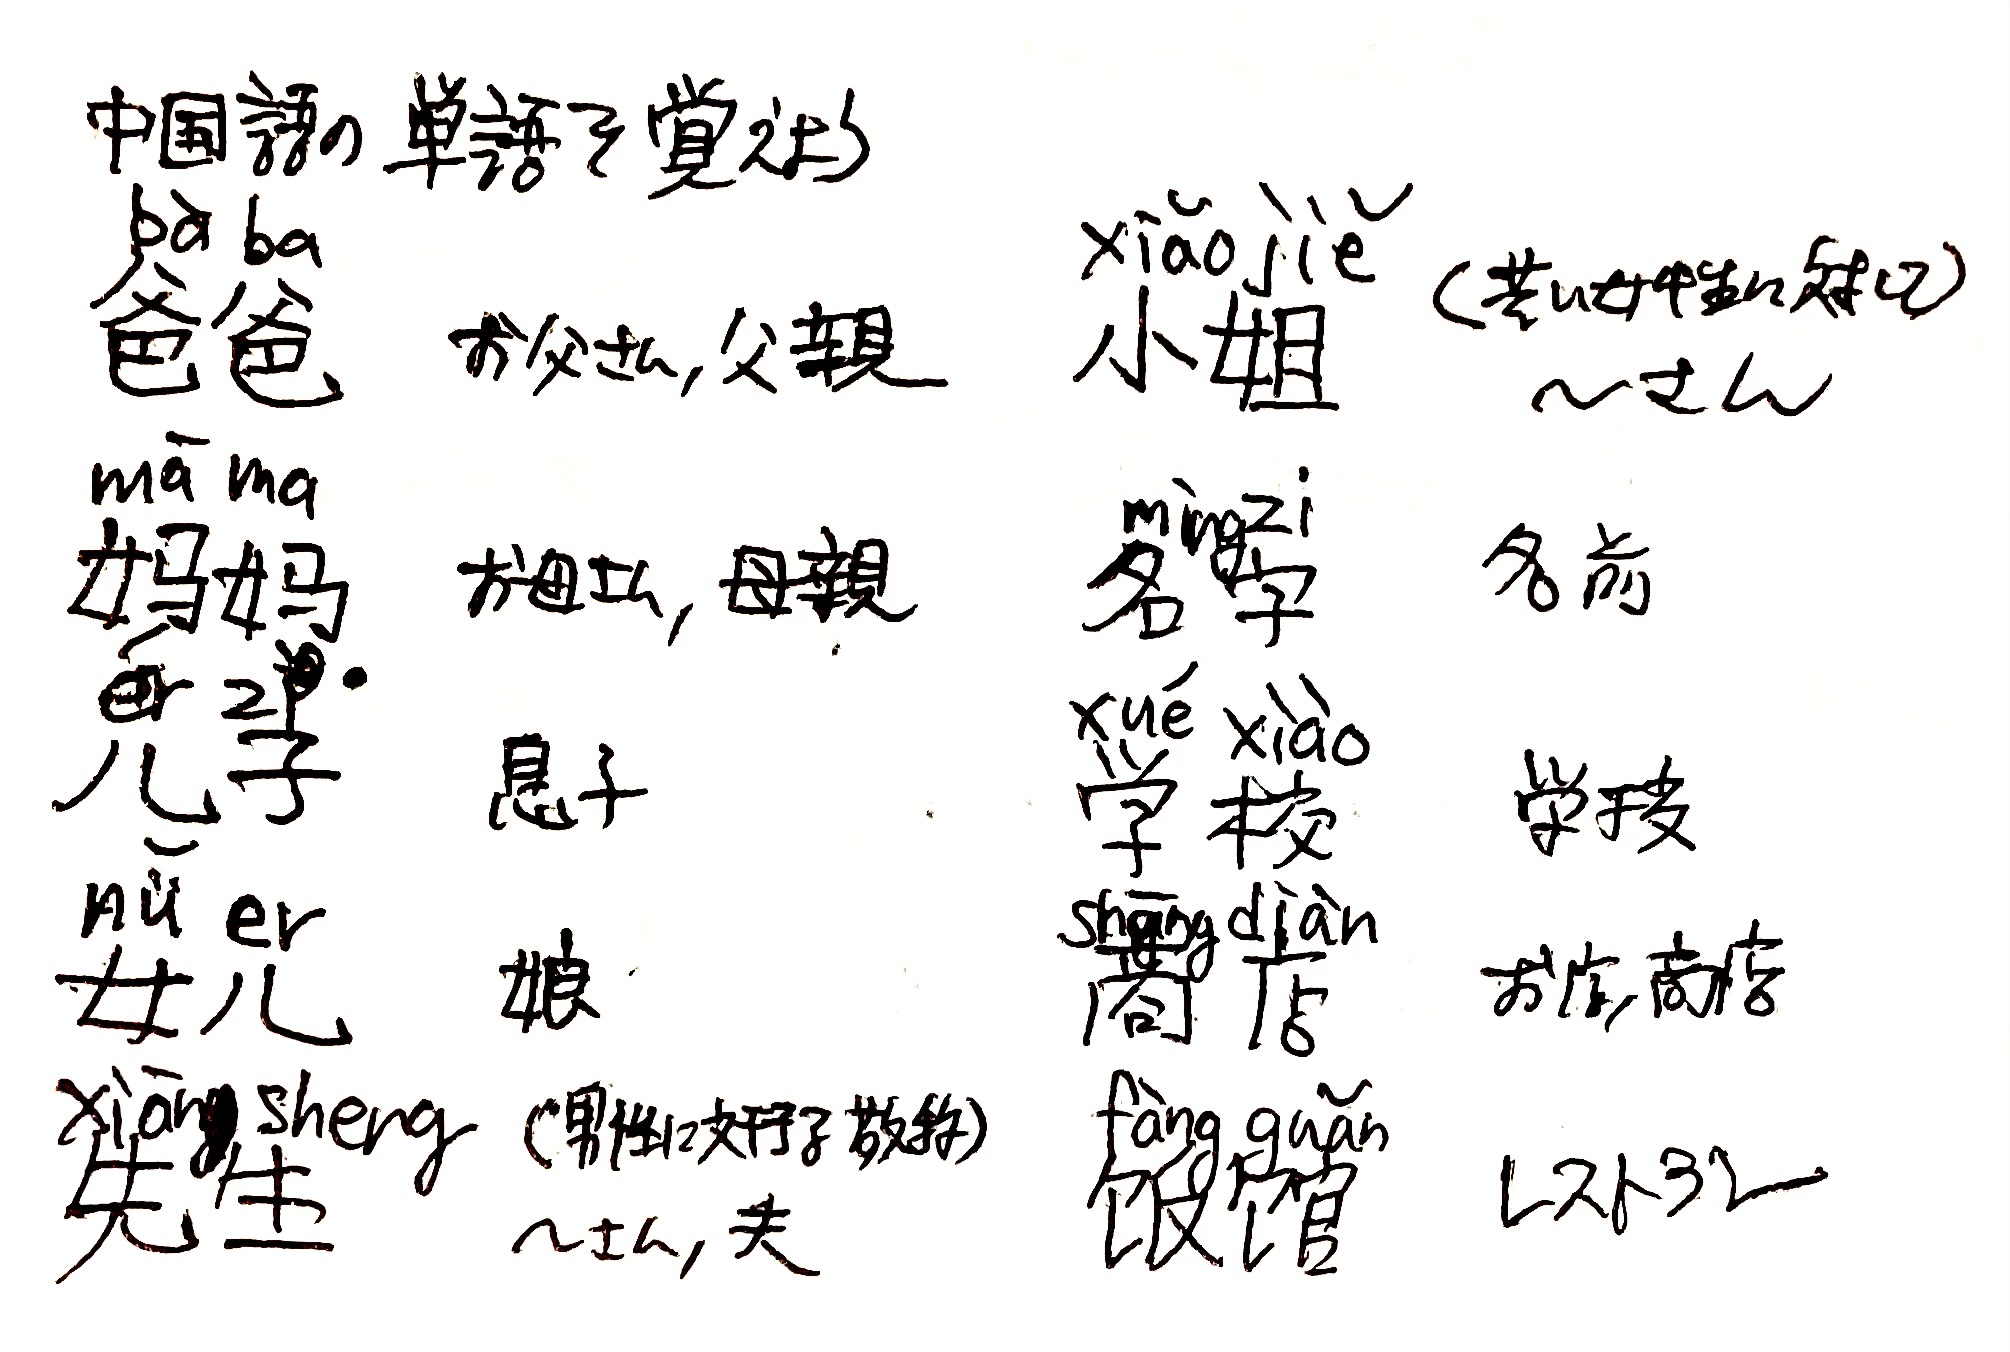 中国語の単語を覚えよう
bà ba
爸爸 お父さん, 父親
mā ma
妈妈 お母さん, 母親
ér zi
儿子 息子
nǚ er
女儿 娘
xiāng sheng (男性に対する敬称)
先生 ～さん, 夫
xiǎo jiě (若い女性に対して)
小姐 ～さん
mìng zi
名字 名前
xué xiào
学校 学校
shāng diàn
商店 お店, 商店
fàng guǎn
饭馆 レストラン